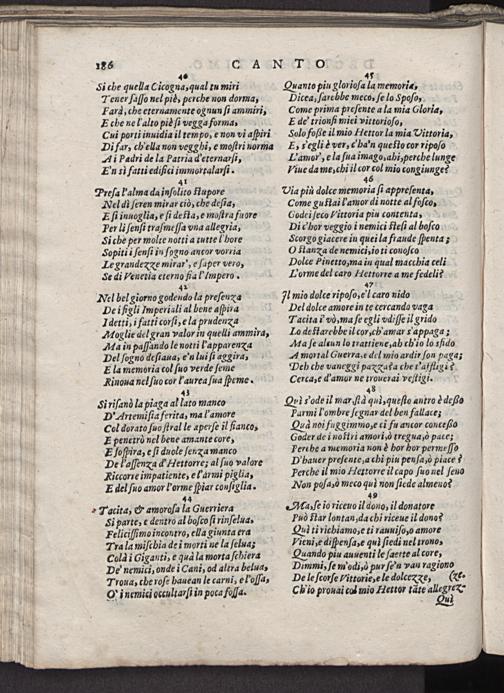 186 CANTO
40
Si che quella Cicogna, qual tu miri
Tener sasso nel piè, perche non dorma,
Farà, che eternamente ognun si ammiri,
E che ne l'alto piè si vegga forma,
Cui porti inuidia il tempo, e non vi aspiri
Di far, ch'ella non vegghi, e mostri norma
A i Padri de la Patria d'eternarsi,
E'n sì fatti edifici immortalarsi.
41
Presa l'alma da insolito stupore
Nel dì seren mirar ciò, che desia,
E sì inuoglia, e si desta, e mostra fuore
Per li sensi trasmessa vna allegria,
Si che per molte notti a tutte l'hore
Sopiti i sensi in sogno ancor vorria
Le grandezze mirar', e saper vero,
Se di Venetia eterno sia l'Impero.
42
Nel bel giorno godendo la presenza
De i figli Imperiali al bene aspira
I detti, i fatti corsi, e la prudenza
Moglie del gran valor in quelli ammira,
Ma in passando le notti l'apparenza
Del sogno desiaua, e'n lui si aggira,
E la memoria col suo verde seme
Rinoua nel suo cor l'aurea sua speme.
43
Si risanò la piaga al lato manco
D'Artemisia ferita, ma l'amore
Col dorato suo stral le aperse il fianco,
E penetrò nel bene amante core,
E sospira, e si duole senza manco
De l'assenza d'Hettorre; al suo valore
Riccorre impatiente, e l'armi piglia,
E del suo amor l'orme spiar consiglia.
44
Tacita, & amorosa la Guerriera
Si parte, e dentro al bosco si rinselua,
Felicissimo incontro, ella giunta era
Tra la mischia de i morti ne la selua;
Colà i Giganti, e quà la morta schiera
De' nemici, onde i Cani, od altra belua,
Troua, che rose hauean le carni, e l'ossa,
O' i nemici occultarsi in poca fossa.
45
Quanto piu gloriosa la memoria,
Dicea, sarebbe meco, se lo Sposo,
Come prima presente a la mia Gloria,
E de' trionfi miei vittorioso,
Solo fosse il mio Hettor la mia Vittoria,
E, s'egli è ver, c'ha'n questo cor riposo
L'amor', e la sua imago, ahi, perche lunge
Viue da me, chi il cor col mio congiunge?
46
Via più dolce memoria si appresenta,
Come gustai l'amor di notte al fosco,
Godei seco Vittoria piu contenta,
Di c'hor veggio i nemici stesi al bosco
Scorgo giacere in quei la fraude spenta;
O stanza de nemici, io ti conosco
Dolce Pinetto, ma in qual macchia celi
L'orme del caro Hettorre a me fedeli?
47
Il mio dolce riposo, e'l caro nido
Del dolce amore in te cercando vaga
Tacita i' vò, ma se egli vdisse il grido
Lo destarebbe il cor, ch'amar s'appaga;
Ma se alcun lo trattiene, ah ch'io lo sfido
A mortal Guerra, e del mio ardir son paga;
Deh che vaneggi pazza? a che t'affligi?
Cerca, e d'amor ne trouerai vestigi.
48
Quì s'ode il mar, stà quì, questo antro è desso
Parmi l'ombre segnar del ben fallace;
Quà noi fuggimmo, e ci fu ancor concesso
Goder de i nostri amori, ò tregua, ò pace;
Perche a memoria non è hor hor permesso
D'hauer presente, a chi piu pensa, ò piace?
Perche il mio Hettorre il capo suo nel seno
Non posa, ò meco quì non siede almeno?
49
Ma, se io riceuo il dono, il donatore
Può star lontan, da chi riceue il dono?
Quì ti richiamo, e ti rauuiso, o amore
Vieni, e dispensa, e quì siedi nel trono,
Quando piu auuenti le saette al core,
Dimmi, se m'odi, ò pur se'n van ragiono
De le scorse Vittorie, e le dolcezze, (ze.
Ch'io prouai col mio Hettor tãte allegrez-
Quì